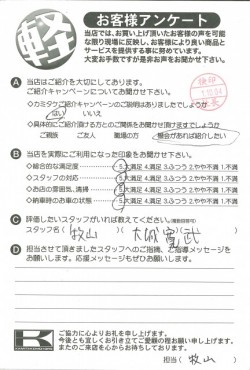 軽
お客様アンケート
当店では、お買い上げ頂いたお客様の声を可能
な限り現場に反映し、お客様により良い商品と
サービスを提供する事に努めています。
大変お手数ですが是非お声をお聞かせ下さい。
A 当店はご紹介を大切にしてあります。
ご紹介キャンペーンについてお聞かせ下さい。
◇カミタワご紹介キャンペーンのご説明はありましたでしょうか
はい いいえ
◇具体的にご紹介頂ける方とのご関係をお聞かせ頂けますでしょうか
ご親族 ご友人 職場の方 機会があれば紹介したい
B 当店を実際にご利用になった印象をお聞かせ下さい。
◇総合的な満足度 5.大満足 4.満足 3.ふつう 2.やや不満 1.不満
◇スタッフの対応 5.大満足 4.満足 3.ふつう 2.やや不満 1.不満
◇お店の雰囲気、清掃 5.大満足 4.満足 3.ふつう 2.やや不満 1.不満
◇納車時のお車の状態 5.大満足 4.満足 3.ふつう 2.やや不満 1.不満
C 評価したいスタッフがいれば教えてください。
スタッフ名( 牧山 )(
D 担当させて頂きましたスタッフへのご指摘、ご指導メッセージを
お願いします。応援メッセージもぜひお願いします。
K
ご協力に心よりお礼を申し上げます。
今後とも宜しくお引き立てご愛顧の程お願い申し上げます。
またのご来店を心からお待ちしております。
担当( 牧山 )